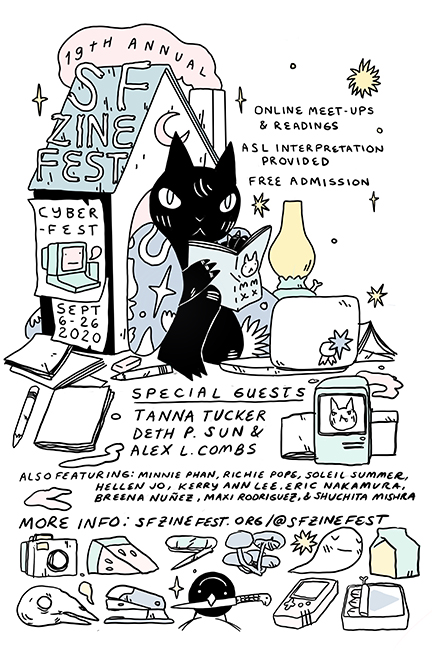 19TH ANNUAL
SF
ZINE
FEST
CYBER
-FEST
SEPT
6-26
2020
ONLINE MEET-UPS
& READINGS
ASL INTERPRETATION
PROVIDED
FREE ADMISSION
MM
XX
SPECIAL GUESTS
TANNA TUCKER
DETH P. SUN &
ALEX L. COMBS
ALSO FEATURING: MINNIE PHAN, RICHIE POPE, SOLEIL SUMMER,
HELLEN JO, KERRY ANN LEE, ERIC NAKAMURA,
BREENA NUÑEZ, MAXI RODRIGUEZ, & SHUCHITA MISHRA
MORE INFO: SFZINEFEST.ORG/@SFZINEFEST